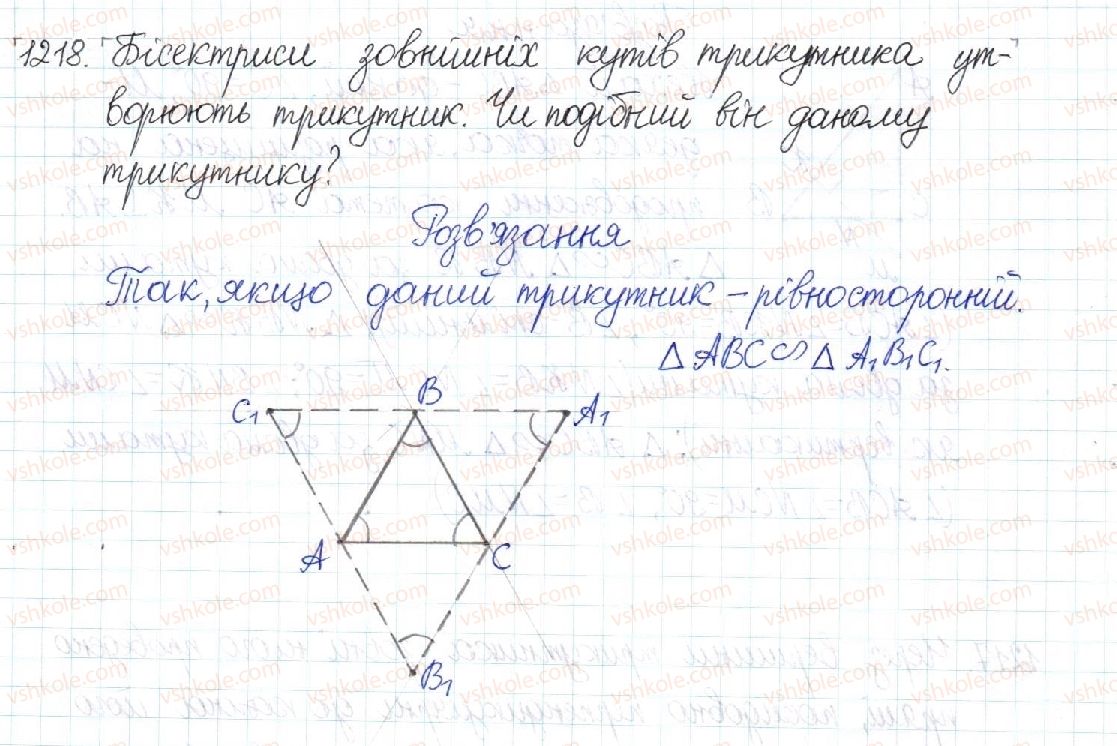 1218. Бісектриси зовнішніх кутів трикутника ут-
ворюють трикутник. Чи подібний він даному
трикутнику?
Розв'язання
Так, якщо даний трикутник – рівносторонній.
△ ABC ∽ △ A₁B₁C₁.
C₁ B A₁
A C
B₁